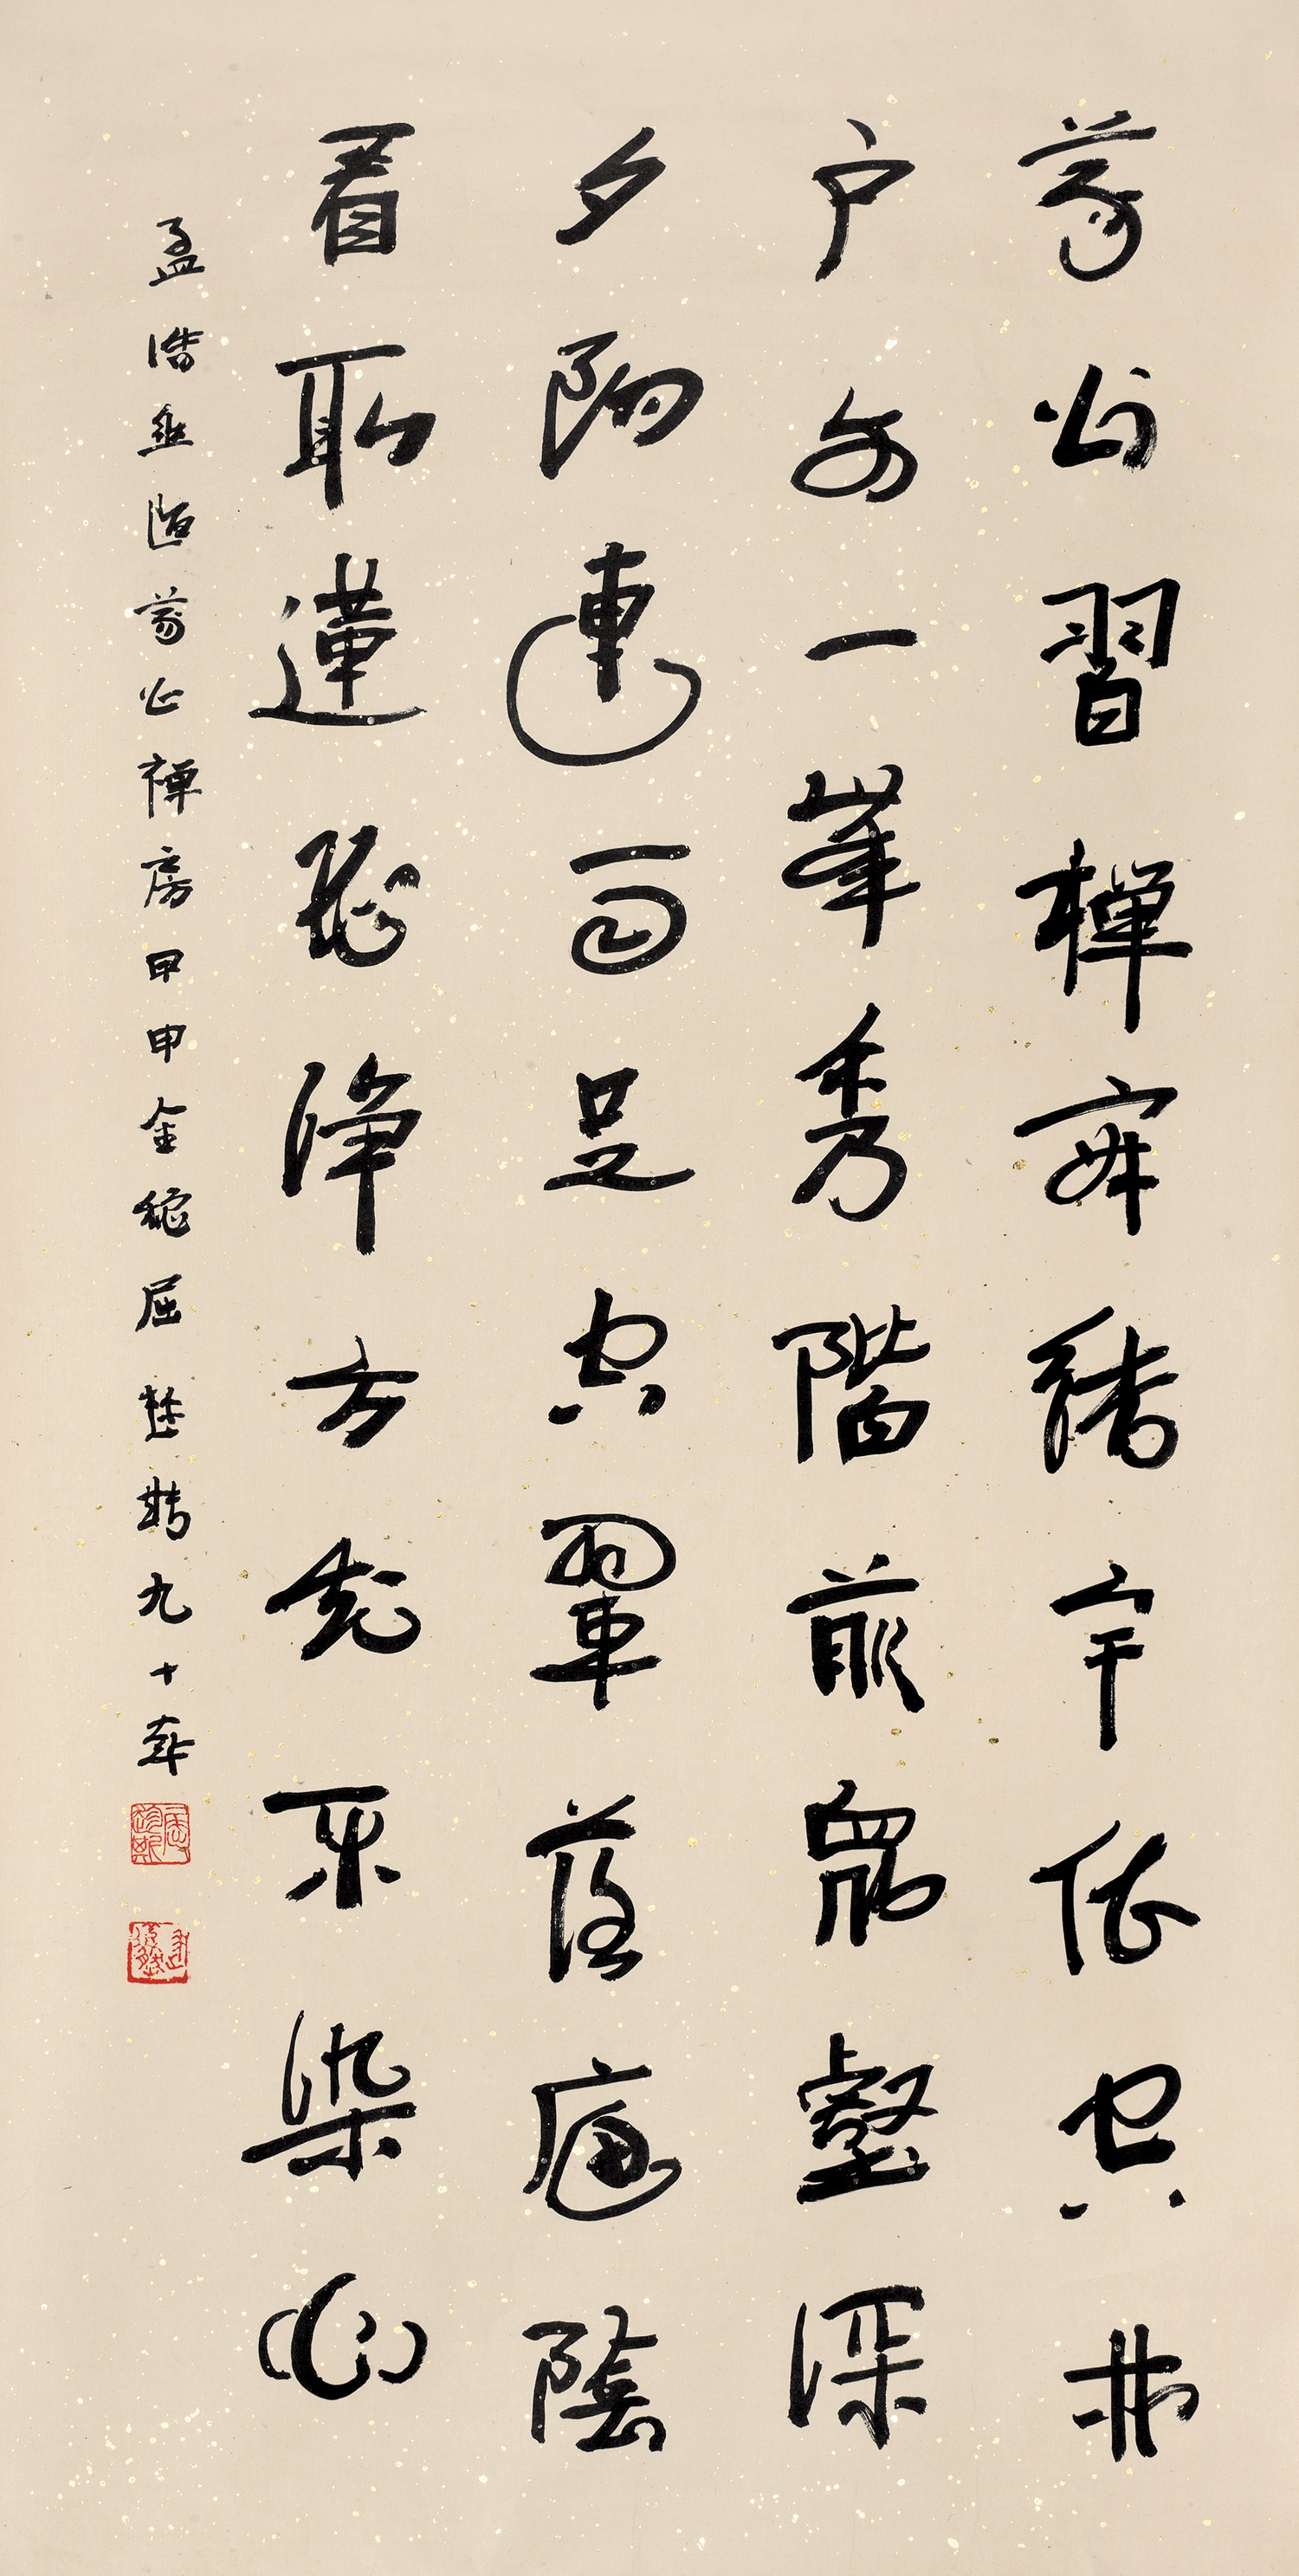 義公習禪寂結宇依空林
户外一峯秀階前眾壑深
夕陽連雨足空翠落庭陰
看取蓮花淨方知不染心
孟浩然題義公禪房甲申金秋屈趁斯九十年
屈趁斯